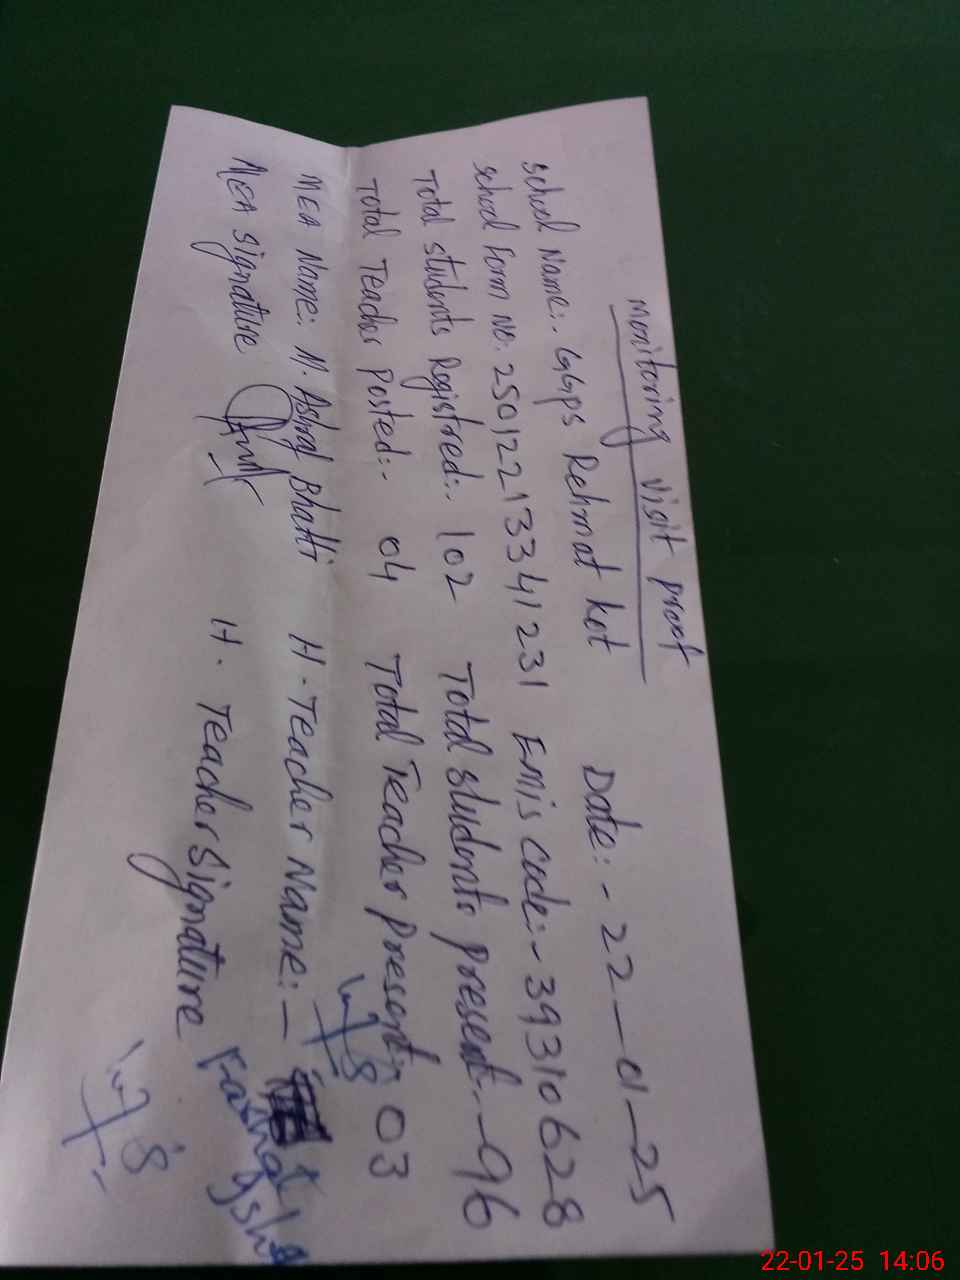 Monitoring visit proof
School Name:. GGPS Rehmat Kot Date:- 22-01-25
School Form No. 2501221334 1231 Emis Code:- 39310628
Total Students Registred:. 102 Total Students present:- 96
Total Teacher Posted:- 04 Total Teacher present:- 03
MEA Name: M. Ashraf Bhatti H. Teacher Name:-
MEA Signature H. Teacher Signature
22-01-25 14:06